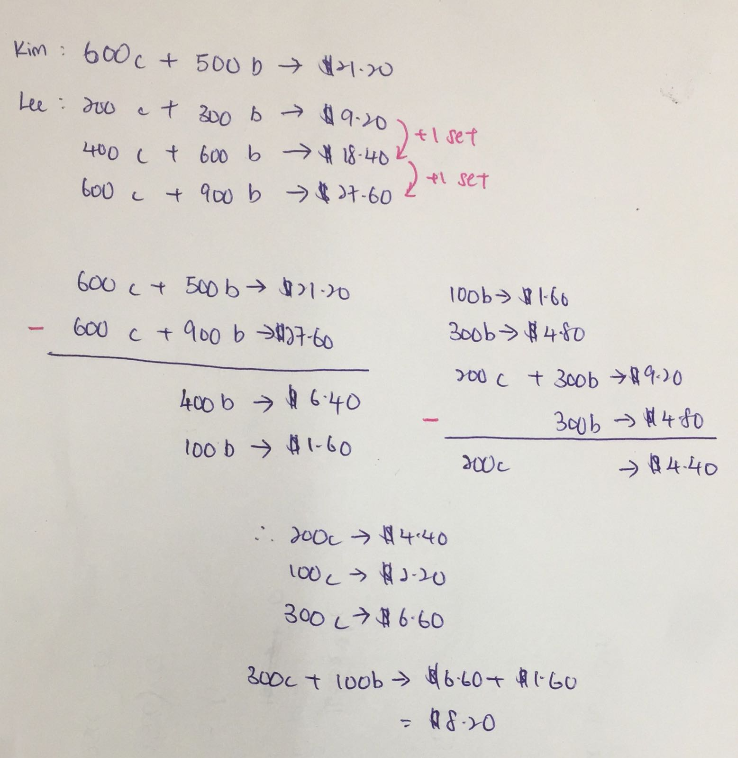 Kim : 600c + 500 b → $21.20
Lee : 200 c + 300 b → $9.20
400 c + 600 b → $18.40
600 c + 900 b → $27.60
+1 set
+1 set
600 c + 500 b → $21.20
- 600 c + 900 b → $27.60
400 b → $6.40
100 b → $1.60
100b → $1.60
300b → $4.80
200 c + 300b → $9.20
- 300b → $4.80
200c → $4.40
∴ 200c → $4.40
100c → $2.20
300 c → $6.60
300c + 100b → $6.60 + $1.60
= $8.20